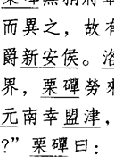 而异之，故有
爵新安侯。洛
界，栗磾劳来
元南幸盟津，
?”栗磾曰：